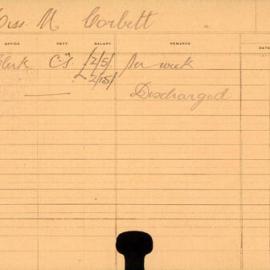 Miss M Corbett
OFFICE DEPT SALARY REMARKS DATE
Clerk per week
Discharged